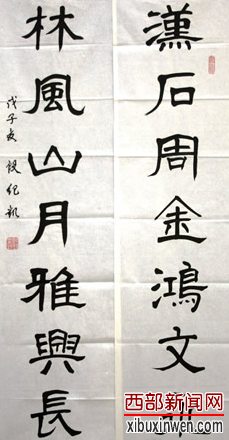 漢石周金鴻文
林風山月雅興長
戊子
段紀凱
西部新闻网
xibuxinwen.com